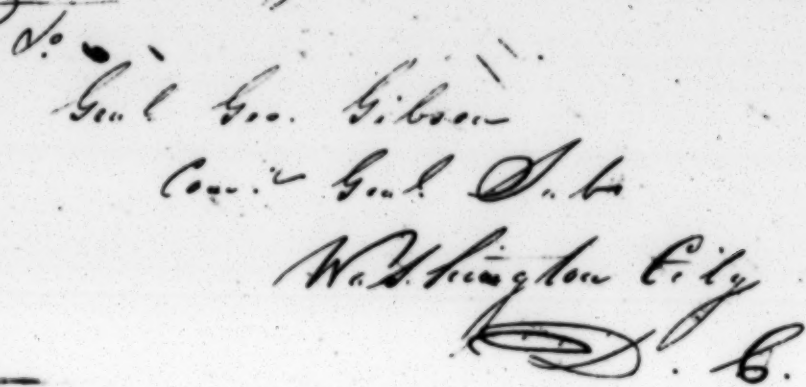 To
Genl Geo. Gibson
Com.y Genl Subs
Washington City
D. C.